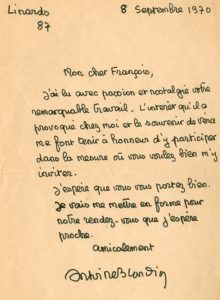 Linards 8 Septembre 1970
87
Mon cher François,
J'ai lu avec passion et nostalgie votre
remarquable travail. L'intérêt qu'il a
provoqué chez moi et le souvenir de
me font tenir à honneur d'y participer
dans la mesure où vous voulez bien m'y
inviter.
J'espère que vous vous portez bien.
Je vais me mettre en forme pour
notre rendez-vous que j'espère
proche.
Amicalement
Antoine Blondin